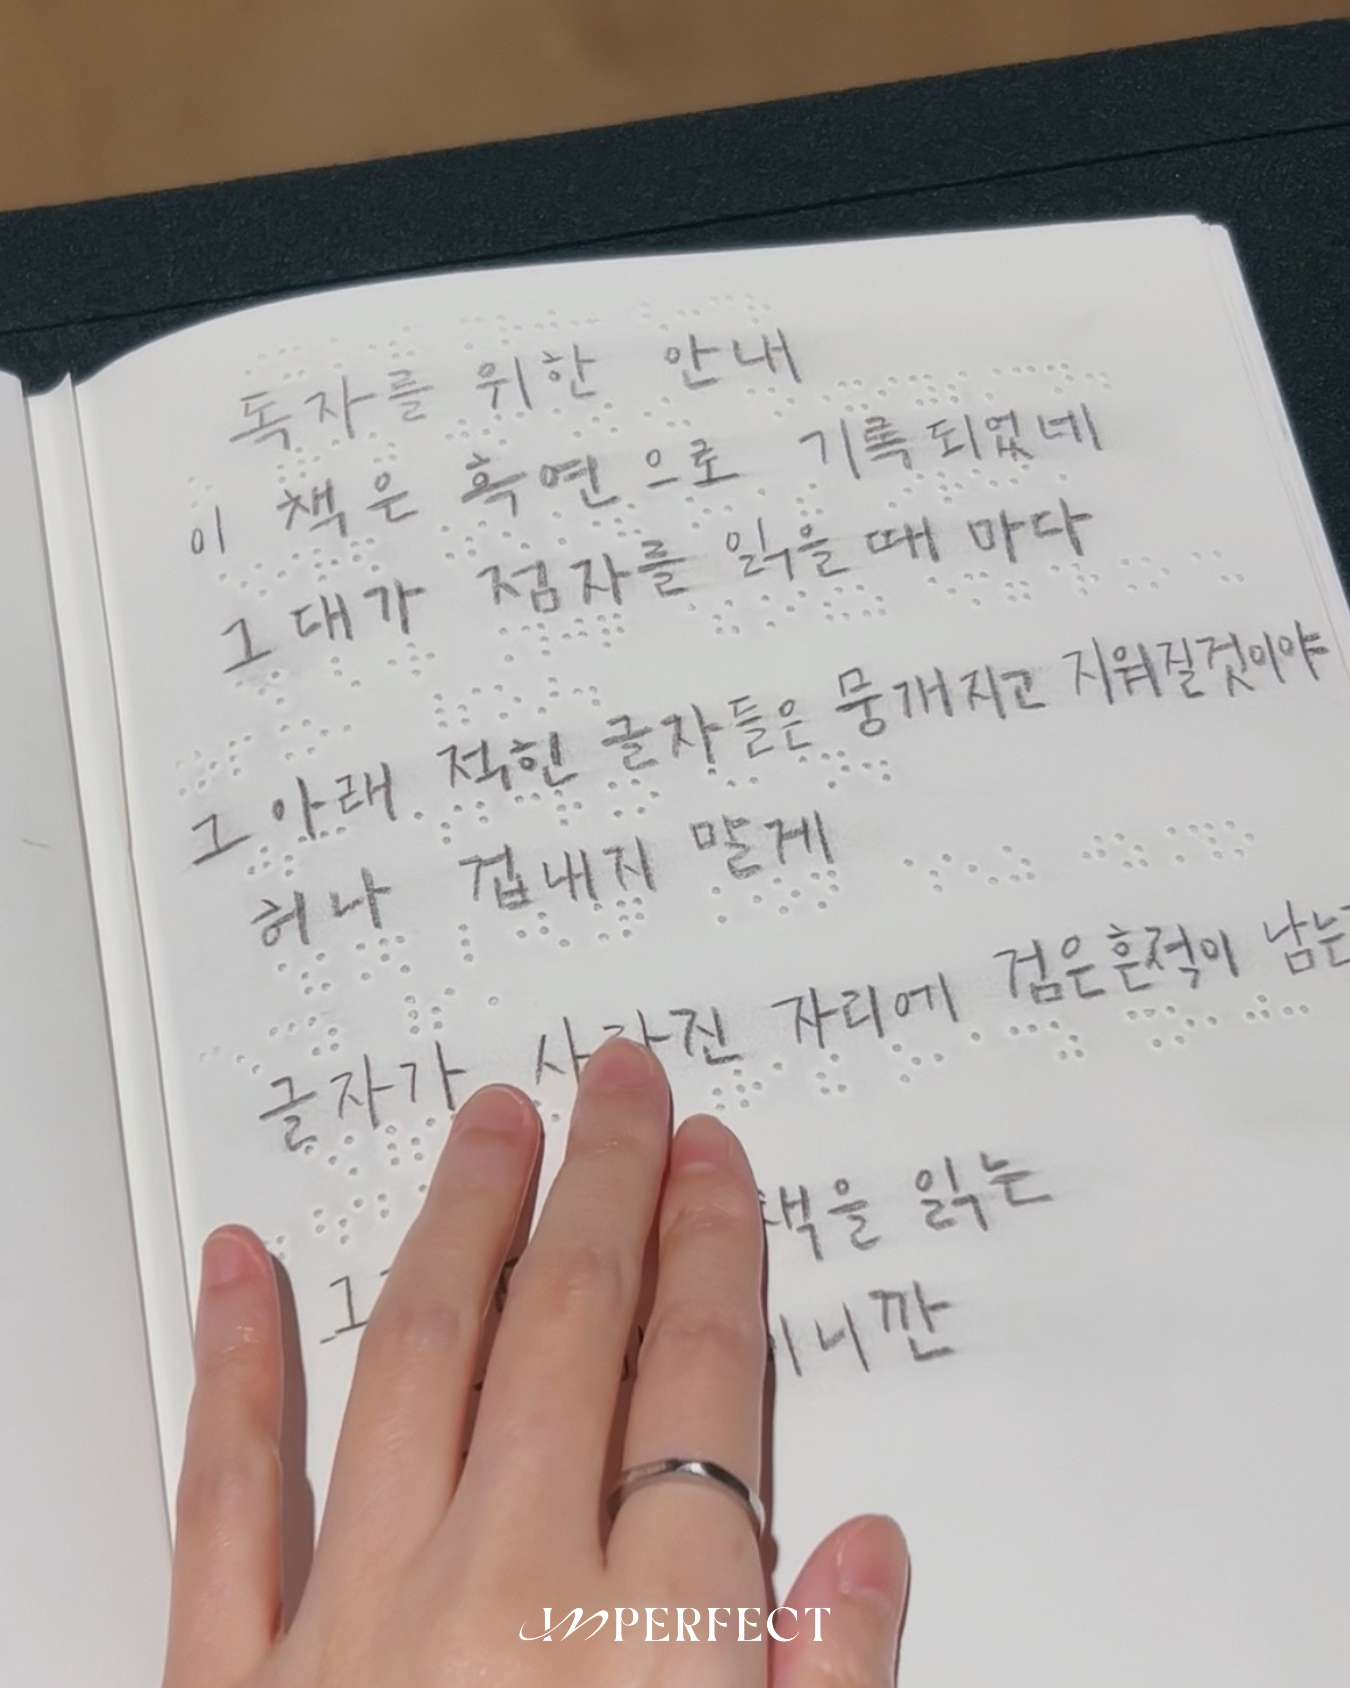 독자를 위한 안내
이 책은 흑연으로 기록되었네
그대가 점자를 읽을 때 마다
그 아래 적힌 글자들은 뭉개지고 지워질것이야
허나 겁내지 말게
글자가 사라진 자리에 검은흔적이 남는
책을 읽는
이니깐
IMPERFECT